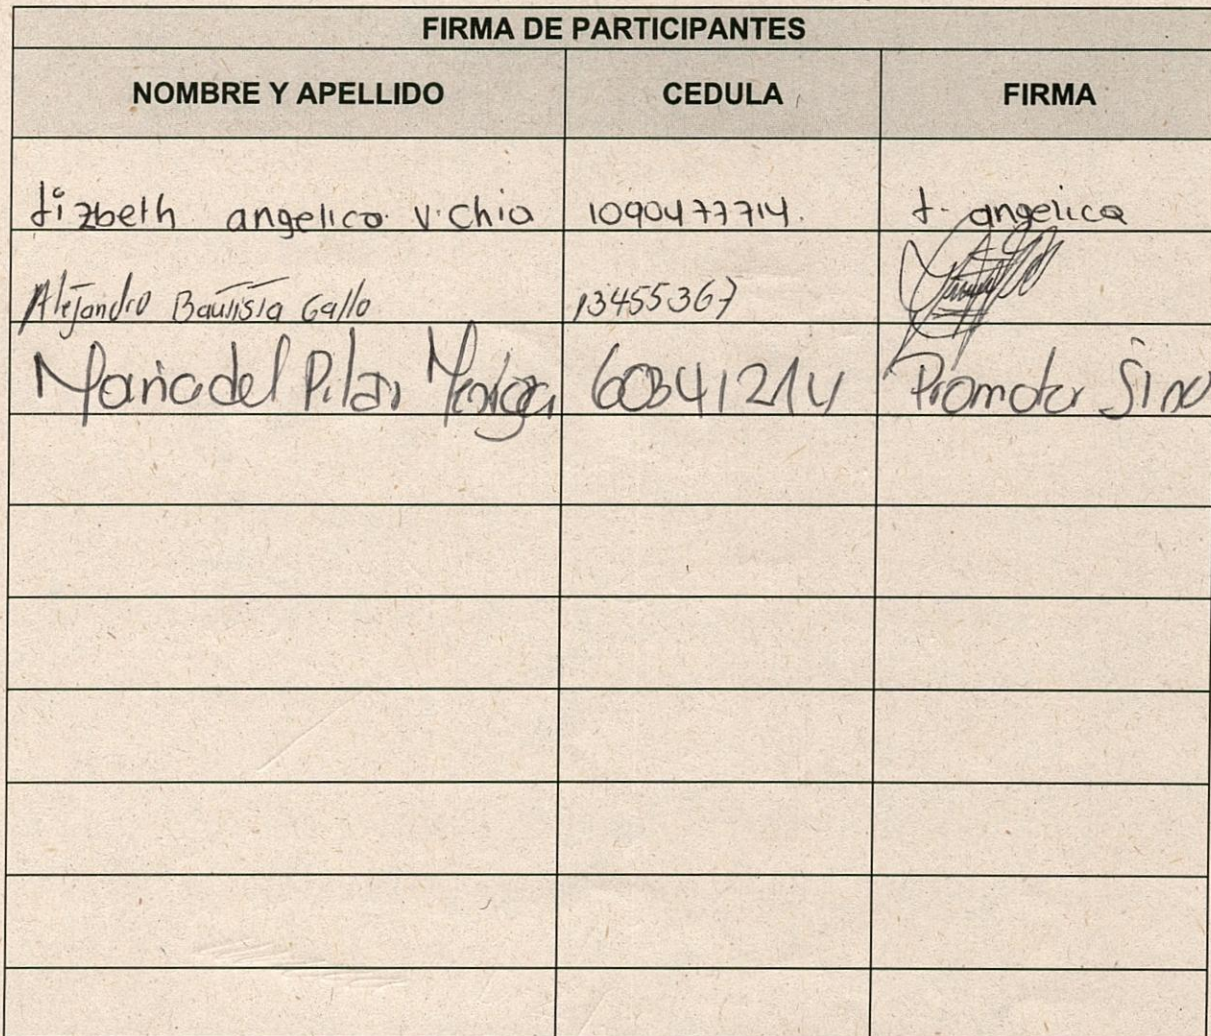 FIRMA DE PARTICIPANTES
NOMBRE Y APELLIDO CEDULA FIRMA
Lizbeth angelica V. Chia 1090477714. L. angelica
Alejandro Bautista Gallo 13455367
Maria del Pilar 60341214 Promotor